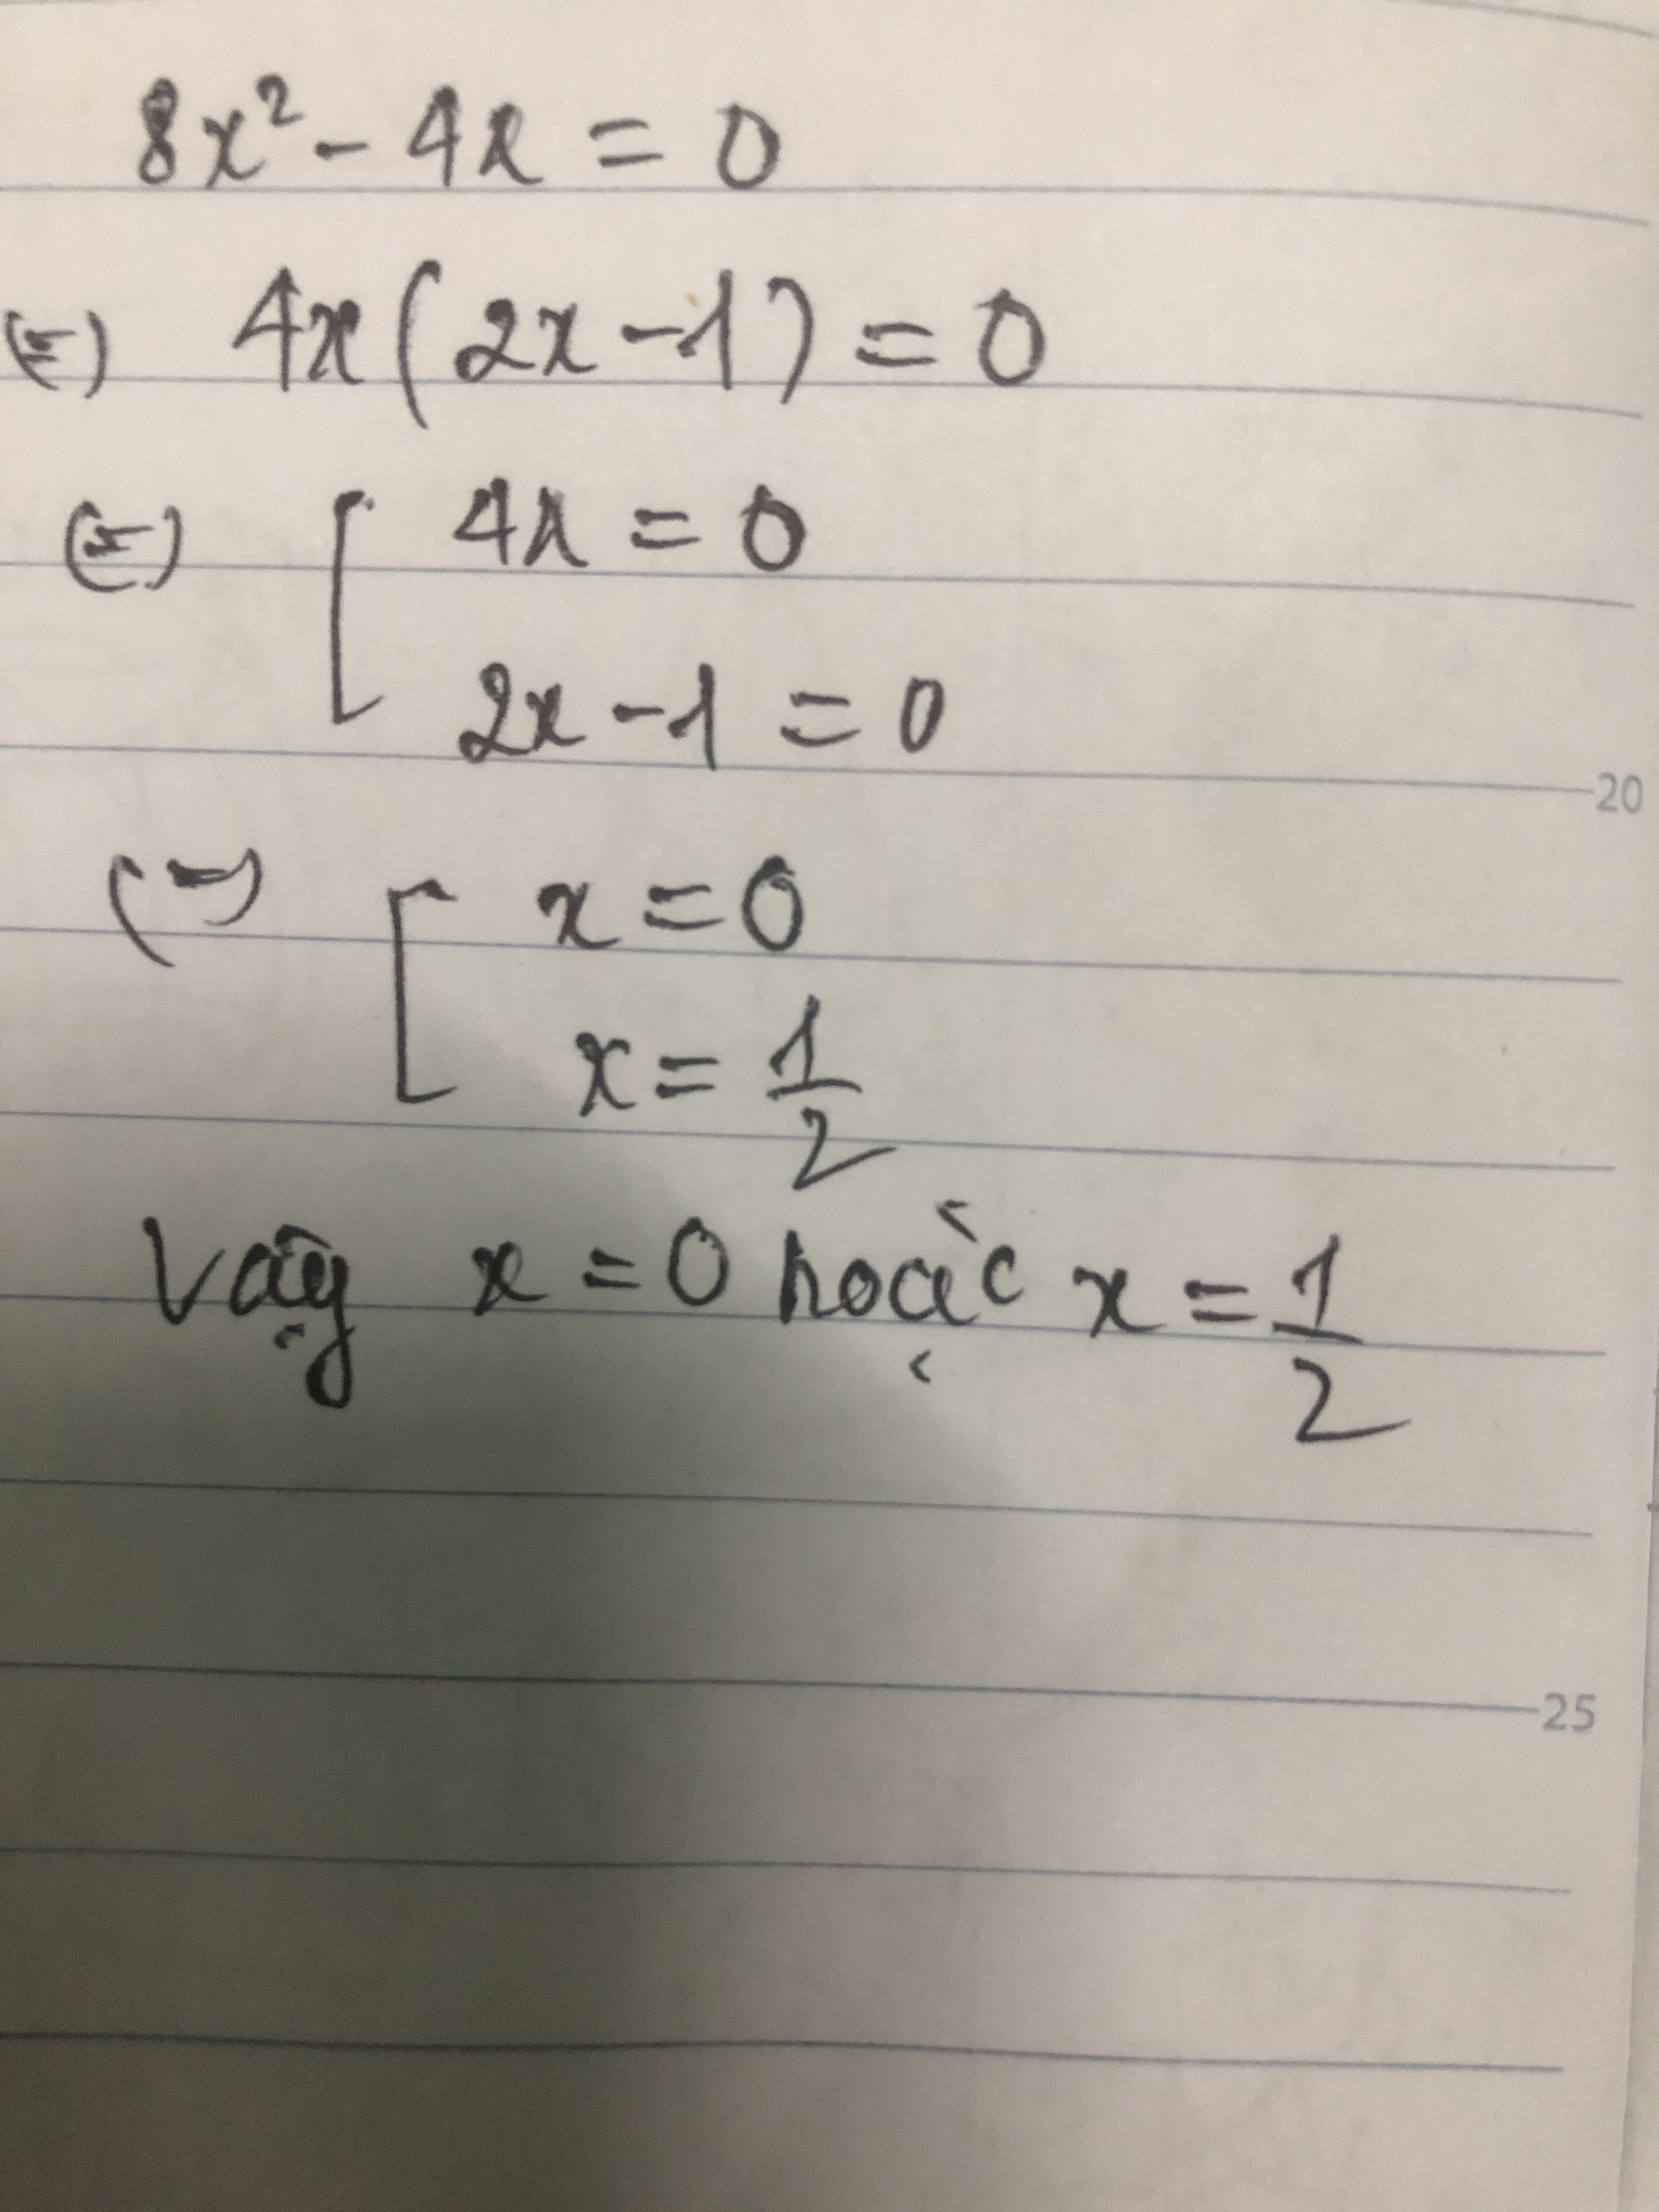 8x² - 4x = 0
(=) 4x(2x-1) = 0
(=) [ 4x = 0
2x-1 = 0
20
(=) [ x = 0
x = 1/2
Vậy x = 0 hoặc x = 1/2
25